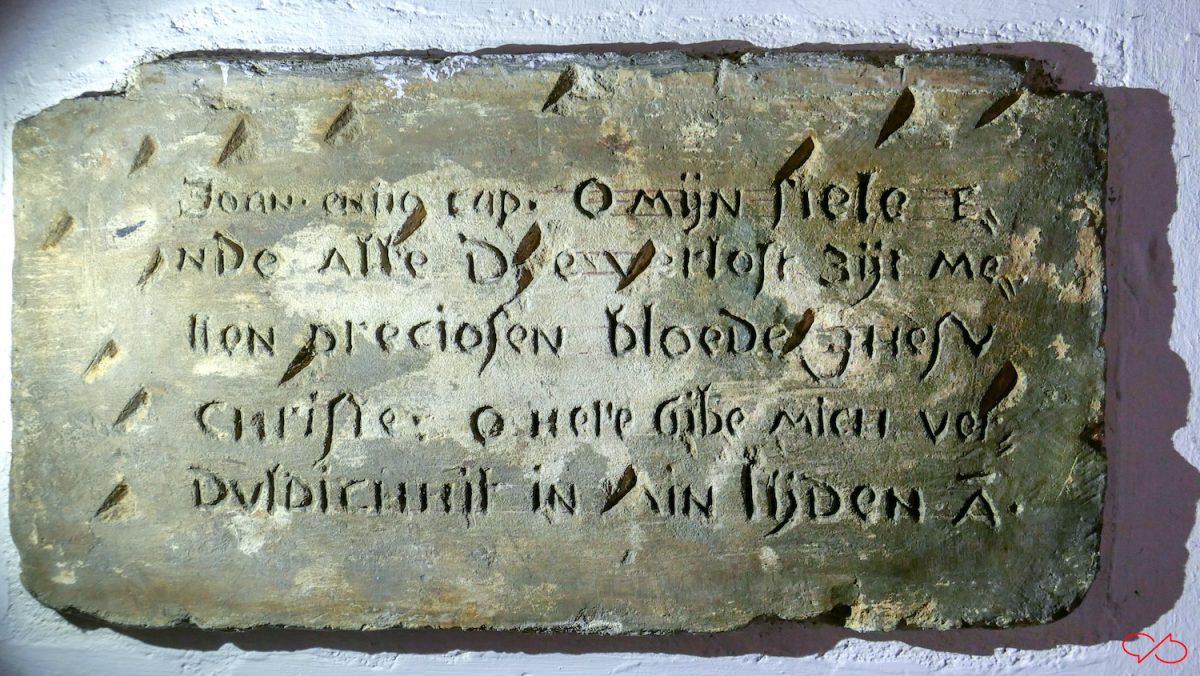 Joan· cap. O mijn siele e⸗
nde alle verlost zijt me⸗
tten preciosen bloede Jhesu
christe: O here gibe mich ver⸗
duldicheijt in min lijden ā.